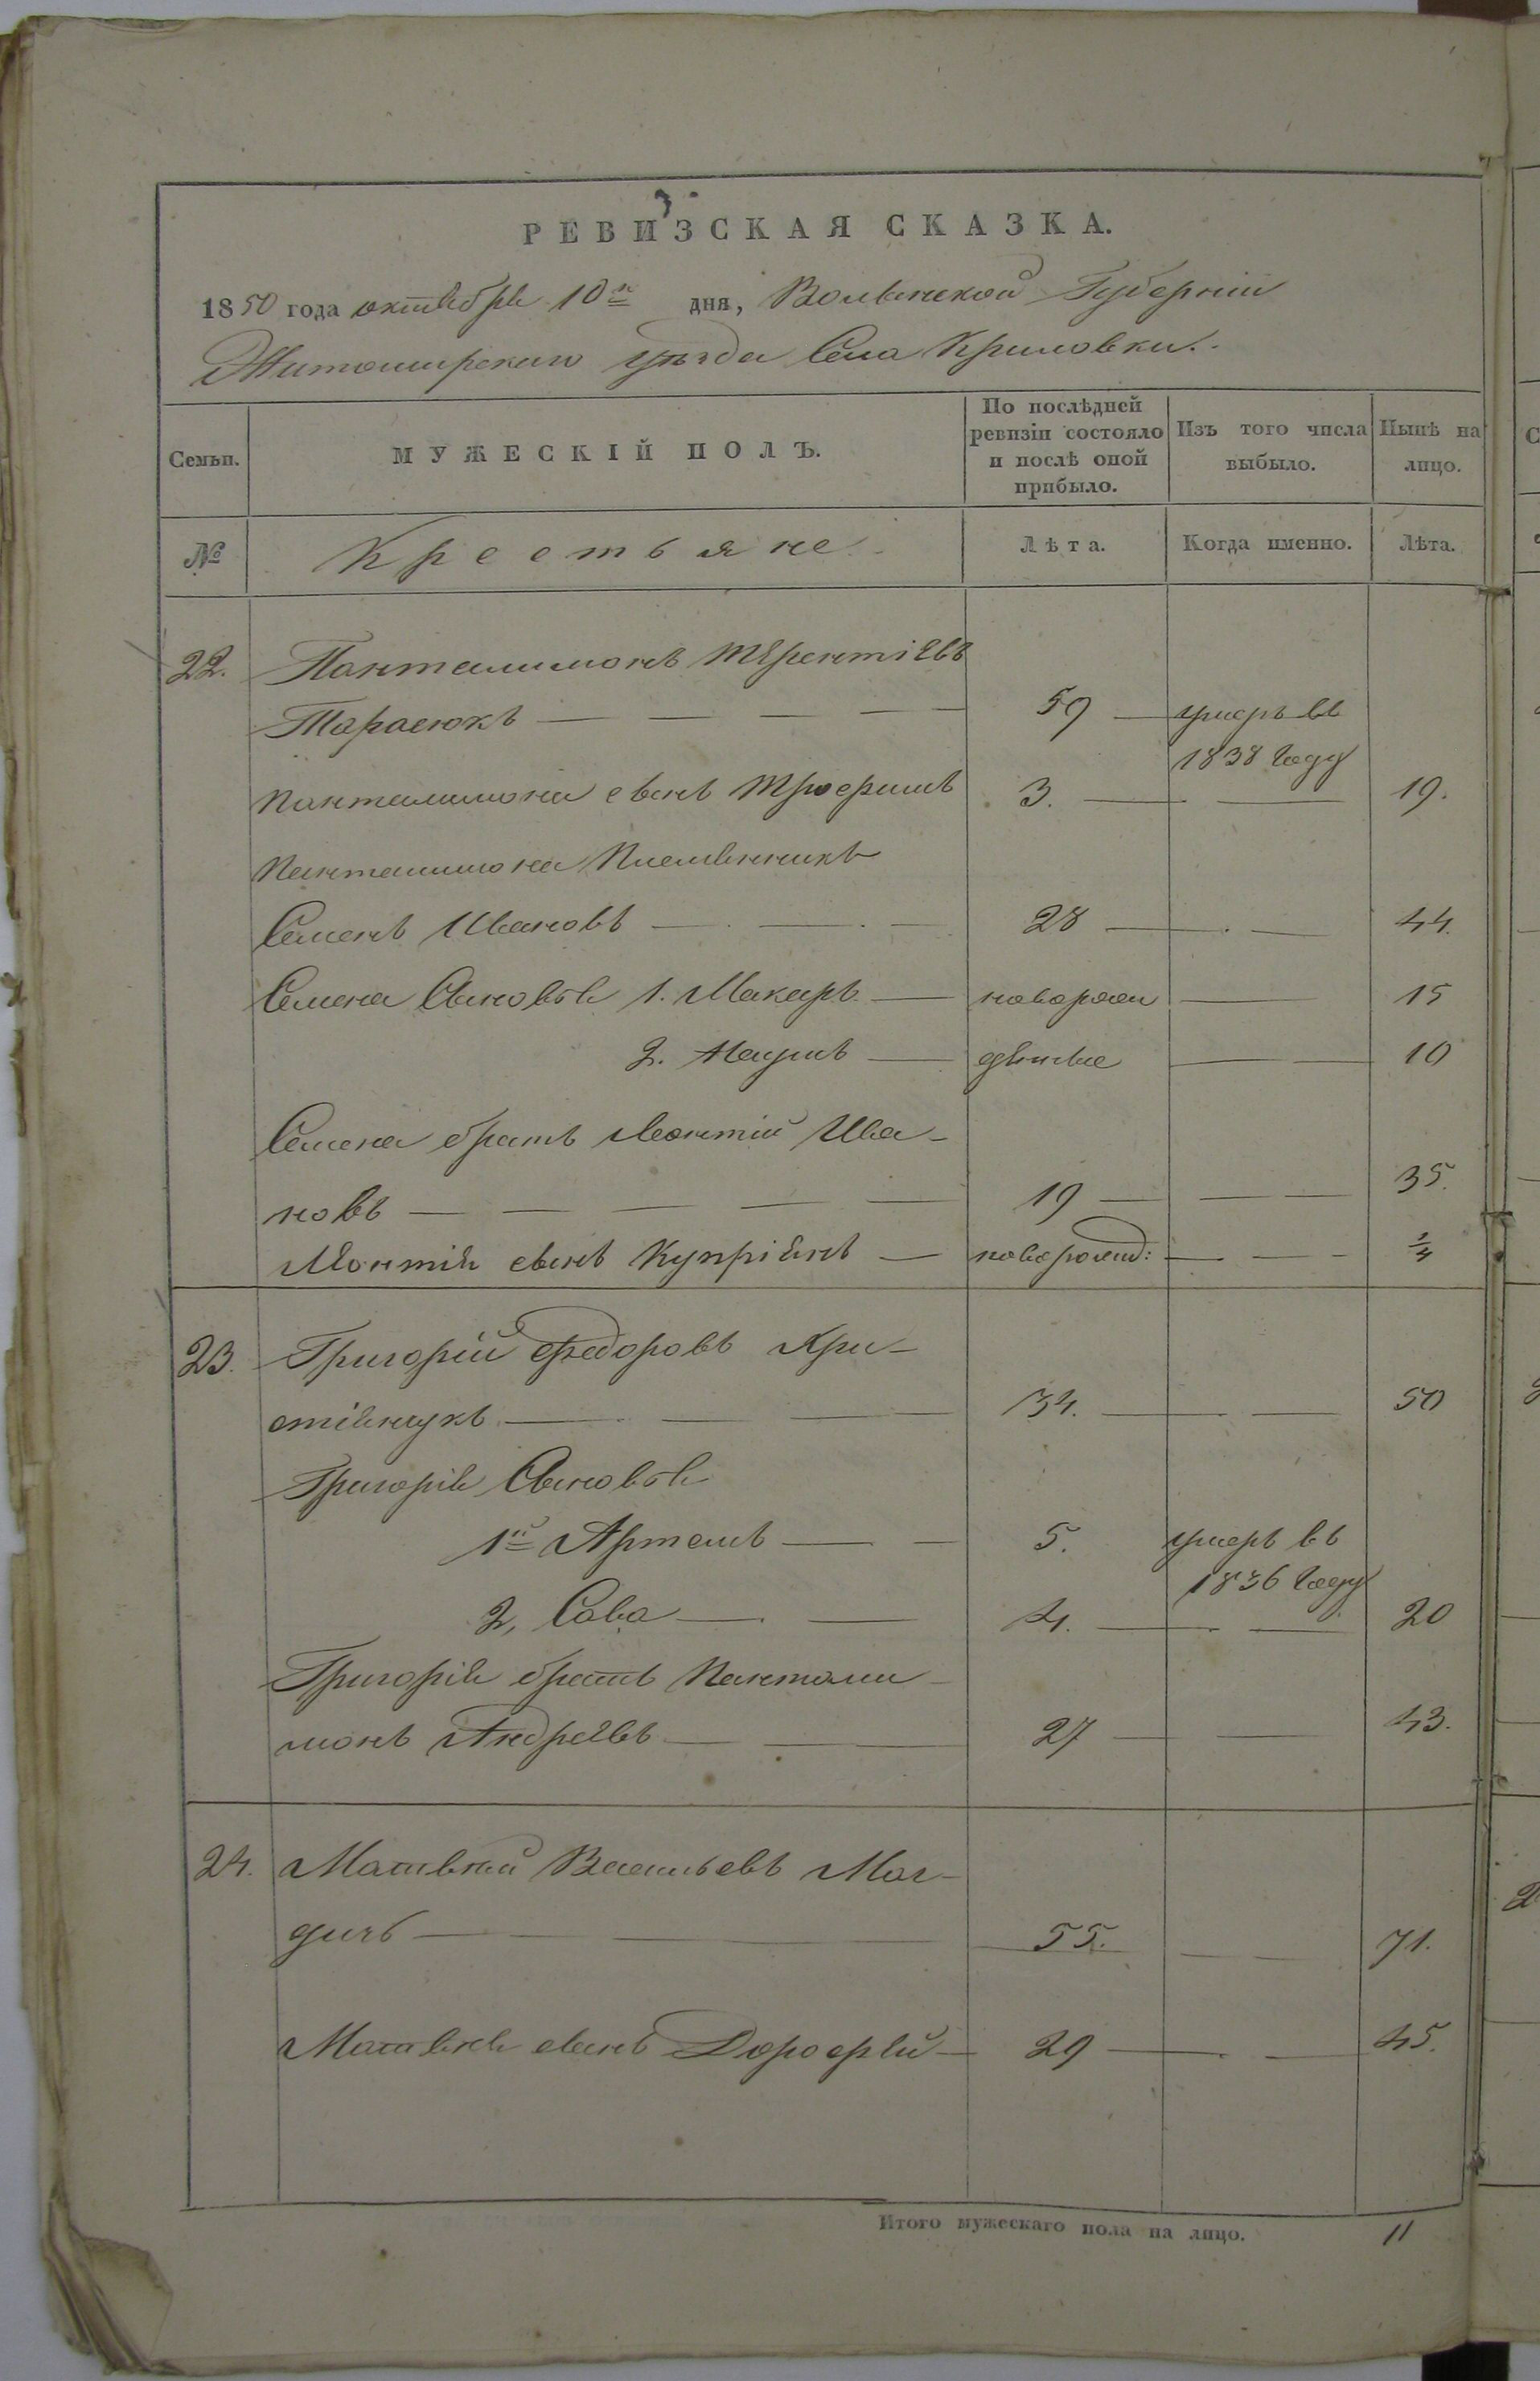 РЕВИЗСКАЯ СКАЗКА.
1850 года октября 10го дня, Волынской Губерніи
Житомирского уѣзда Села Криловки.
Семьи.
МУЖЕСКІЙ ПОЛЪ.
По послѣдней ревизіи состояло и послѣ оной прибыло.
Изъ того числа выбыло.
Нынѣ на лицо.
№
Крестьяне
Лѣта.
Когда именно.
Лѣта.
22. Пантелимонъ Терентіевъ
Тарасюкъ — 59 — умеръ въ
1838 году
Пантелимона сынъ Трофимъ 3. — 19.
Пантелимона Племянникъ
Семенъ Ивановъ — 28 — 44.
Семена Сыновья 1. Макаръ — новорож 15
2. Наумъ — дѣнные 10
Семена братъ Леонтій Ива-
новъ — 19 — 35.
Леонтія сынъ Купріянъ — новорожд: — 3/4
23. Григорій Федоровъ Хри-
стіянчукъ — 34. — 50
Григорія Сыновья
1й Артемъ — 5. умеръ въ
1836 году
2, Сава — 4. — 20
Григорія братъ Пантели-
монъ Андреевъ — 27 — 43.
24. Матвѣй Васильевъ
дичъ — 55. 71.
Матвѣя сынъ Дорофѣй — 29 — 45.
Итого мужескаго пола на лицо. 11